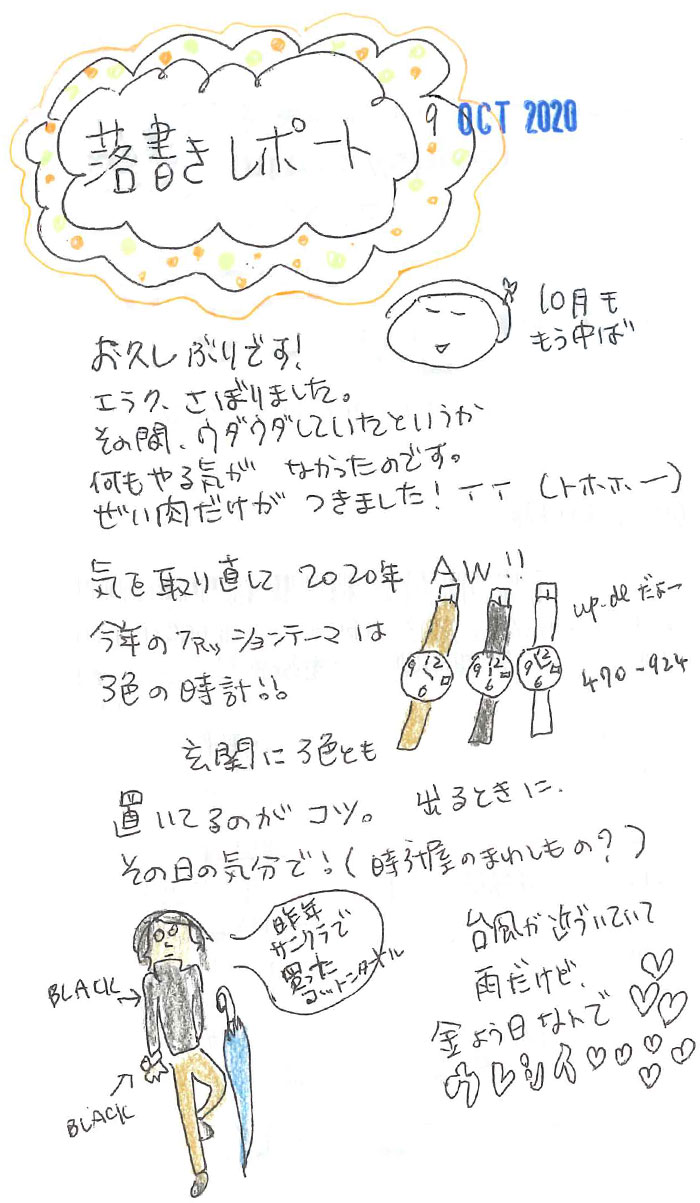 落書きレポート
9 OCT 2020
10月も
もう中ば
お久しぶりです!
エラク、さぼりました。
その間、ウダウダしていたというか
何もやる気が なかったのです。
ぜい肉だけが つきました! TT (トホホー)
気を取り直して 2020年 AW!!
今年のファッションテーマは
3色の時計!!
up-dlだよー
470-924
12
9
6
12
9
6
12
9
6
玄関に3色とも
置いてるのが コツ。 出るときに、
その日の気分で!(時計屋のまわしもの?)
昨年
サンクラで
買った
コットンタートル
BLACK
BLACK
台風が近づいていて
雨だけど、
金よう日なんで
ウレシイ